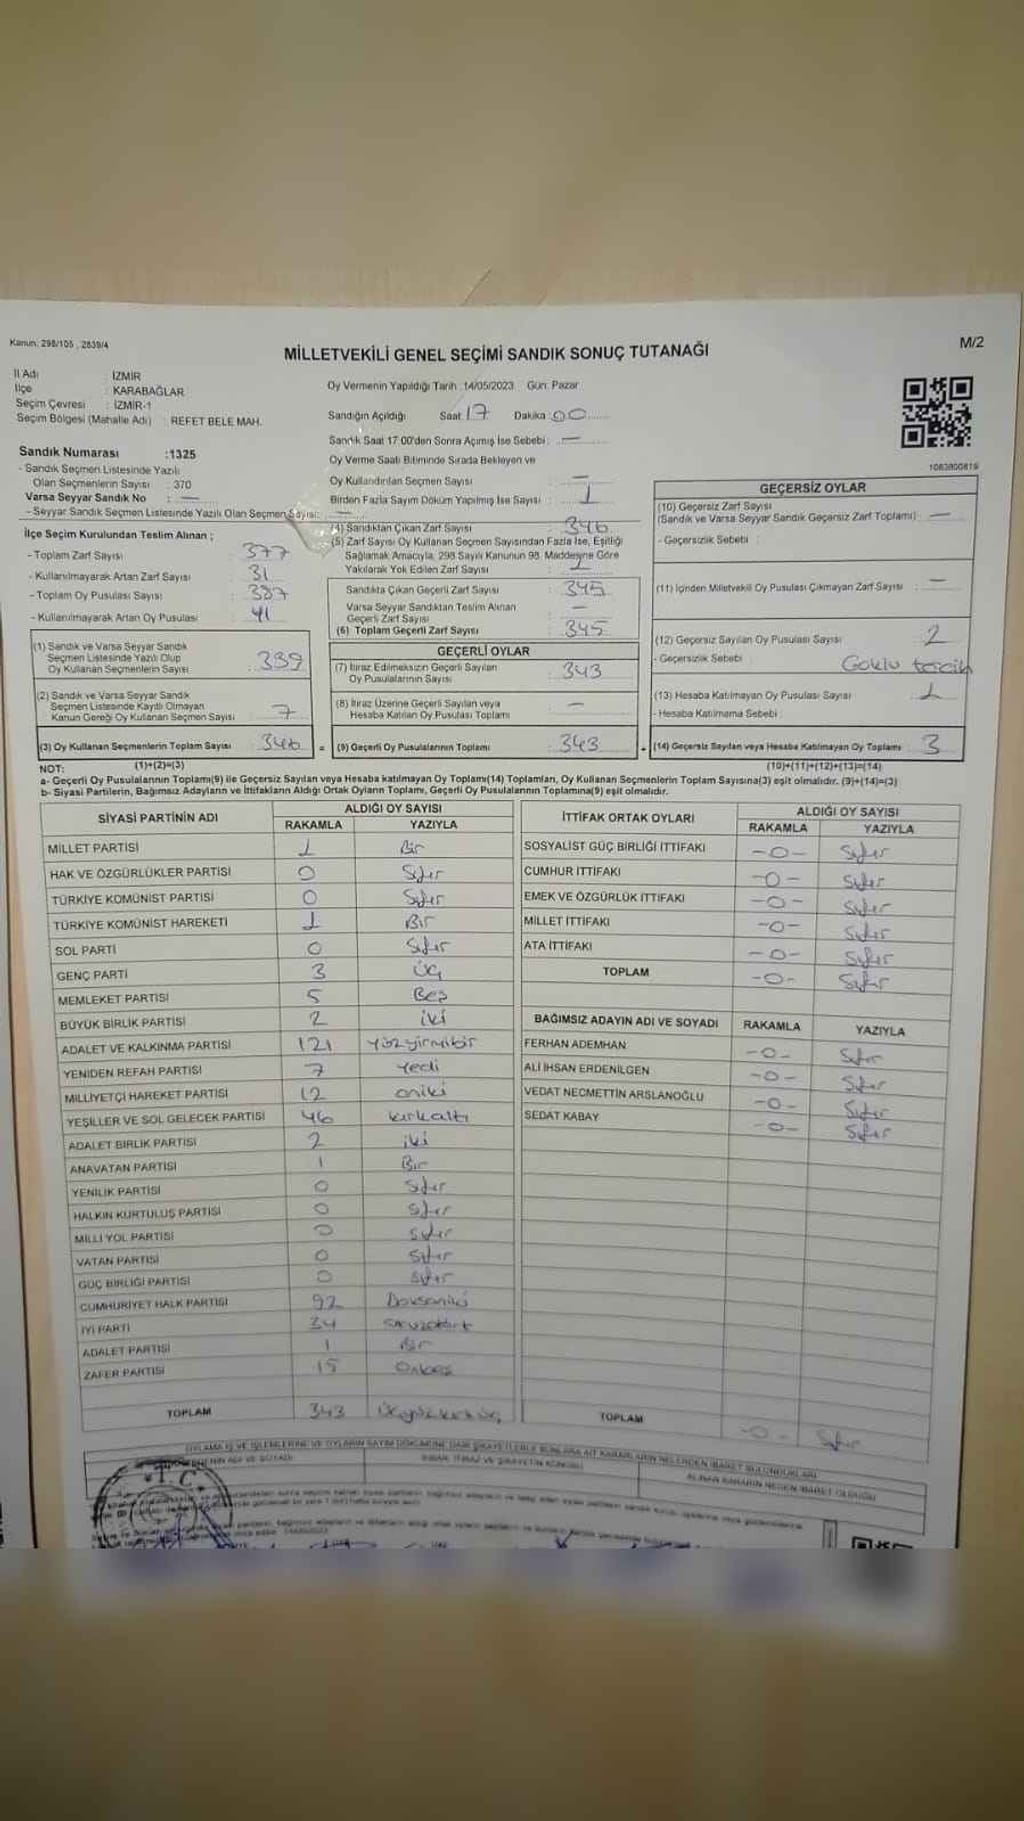 Kanun: 298/105 , 2839/4
MİLLETVEKİLİ GENEL SEÇİMİ SANDIK SONUÇ TUTANAĞI
M/2
İl Adı İZMİR
İlçe : KARABAĞLAR
Seçim Çevresi : İZMİR-1
Seçim Bölgesi (Mahalle Adı) : REFET BELE MAH.
Oy Vermenin Yapıldığı Tarih :14/05/2023 Gün: Pazar
Sandığın Açıldığı Saat: 17 Dakika: 00
Sandık Saat 17:00'den Sonra Açımış İse Sebebi : —
Oy Verme Saati Bitiminde Sırada Bekleyen ve
Oy Kullandırılan Seçmen Sayısı : —
Birden Fazla Sayım Döküm Yapılmış İse Sayısı : 1
1083800819
Sandık Numarası :1325
- Sandık Seçmen Listesinde Yazılı
Olan Seçmenlerin Sayısı : 370
Varsa Seyyar Sandık No : —
- Seyyar Sandık Seçmen Listesinde Yazılı Olan Seçmen Sayısı: —
İlçe Seçim Kurulundan Teslim Alınan ;
- Toplam Zarf Sayısı : 377
- Kullanılmayarak Artan Zarf Sayısı : 31
- Toplam Oy Pusulası Sayısı : 387
- Kullanılmayarak Artan Oy Pusulası : 41
(1) Sandık ve Varsa Seyyar Sandık
Seçmen Listesinde Yazılı Olup
Oy Kullanan Seçmenlerin Sayısı : 339
(2) Sandık ve Varsa Seyyar Sandık
Seçmen Listesinde Kayıtlı Olmayan
Kanun Gereği Oy Kullanan Seçmen Sayısı : 7
(3) Oy Kullanan Seçmenlerin Toplam Sayısı : 346
(4) Sandıktan Çıkan Zarf Sayısı : 346
(5) Zarf Sayısı Oy Kullanan Seçmen Sayısından Fazla İse, Eşitliği
Sağlamak Amacıyla, 298 Sayılı Kanunun 98. Maddesine Göre
Yakılarak Yok Edilen Zarf Sayısı
Sandıkta Çıkan Geçerli Zarf Sayısı : 345
Varsa Seyyar Sandıktan Teslim Alınan
Geçerli Zarf Sayısı : —
(6) Toplam Geçerli Zarf Sayısı : 345
GEÇERLİ OYLAR
(7) İtiraz Edilmeksizin Geçerli Sayılan
Oy Pusulalarının Sayısı : 343
(8) İtiraz Üzerine Geçerli Sayılan veya
Hesaba Katılan Oy Pusulası Toplamı : —
= (9) Geçerli Oy Pusulalarının Toplamı : 343
GEÇERSİZ OYLAR
(10) Geçersiz Zarf Sayısı
(Sandık ve Varsa Seyyar Sandık Geçersiz Zarf Toplamı) : —
- Geçersizlik Sebebi :
(11) İçinden Milletvekili Oy Pusulası Çıkmayan Zarf Sayısı : —
(12) Geçersiz Sayılan Oy Pusulası Sayısı : 2
- Geçersizlik Sebebi : Çoklu tercih
(13) Hesaba Katılmayan Oy Pusulası Sayısı : 1
- Hesaba Katılmama Sebebi :
(14) Geçersiz Sayılan veya Hesaba Katılmayan Oy Toplamı : 3
NOT: (1)+(2)=(3) (10)+(11)+(12)+(13)=(14)
a- Geçerli Oy Pusulalarının Toplamı(9) ile Geçersiz Sayılan veya Hesaba katılmayan Oy Toplamı(14) Toplamları, Oy Kullanan Seçmenlerin Toplam Sayısına(3) eşit olmalıdır. (9)+(14)=(3)
b- Siyasi Partilerin, Bağımsız Adayların ve İttifakların Aldığı Ortak Oyların Toplamı, Geçerli Oy Pusulalarının Toplamına(9) eşit olmalıdır.
SİYASİ PARTİNİN ADI ALDIĞI OY SAYISI
RAKAMLA YAZIYLA
MİLLET PARTİSİ 1 Bir
HAK VE ÖZGÜRLÜKLER PARTİSİ 0 Sıfır
TÜRKİYE KOMÜNİST PARTİSİ 0 Sıfır
TÜRKİYE KOMÜNİST HAREKETİ 1 Bir
SOL PARTİ 0 Sıfır
GENÇ PARTİ 3 Üç
MEMLEKET PARTİSİ 5 Beş
BÜYÜK BİRLİK PARTİSİ 2 iki
ADALET VE KALKINMA PARTİSİ 121 Yüzyirmibir
YENİDEN REFAH PARTİSİ 7 Yedi
MİLLİYETÇİ HAREKET PARTİSİ 12 oniki
YEŞİLLER VE SOL GELECEK PARTİSİ 46 kırkaltı
ADALET BİRLİK PARTİSİ 2 iki
ANAVATAN PARTİSİ 1 Bir
YENİLİK PARTİSİ 0 Sıfır
HALKIN KURTULUŞ PARTİSİ 0 Sıfır
MİLLİ YOL PARTİSİ 0 Sıfır
VATAN PARTİSİ 0 Sıfır
GÜÇ BİRLİĞİ PARTİSİ 0 Sıfır
CUMHURİYET HALK PARTİSİ 92 Doksaniki
İYİ PARTİ 34
ADALET PARTİSİ 1 Bir
ZAFER PARTİSİ 15 Onbeş
TOPLAM 343 Üçyüzkırküç
İTTİFAK ORTAK OYLARI ALDIĞI OY SAYISI
RAKAMLA YAZIYLA
SOSYALİST GÜÇ BİRLİĞİ İTTİFAKI -0- Sıfır
CUMHUR İTTİFAKI -0- Sıfır
EMEK VE ÖZGÜRLÜK İTTİFAKI -0- Sıfır
MİLLET İTTİFAKI -0- Sıfır
ATA İTTİFAKI -0- Sıfır
TOPLAM -0- Sıfır
BAĞIMSIZ ADAYIN ADI VE SOYADI RAKAMLA YAZIYLA
FERHAN ADEMHAN -0- Sıfır
ALİ İHSAN ERDENİLGEN -0- Sıfır
VEDAT NECMETTİN ARSLANOĞLU -0- Sıfır
SEDAT KABAY -0- Sıfır
TOPLAM -0- Sıfır
T.C.